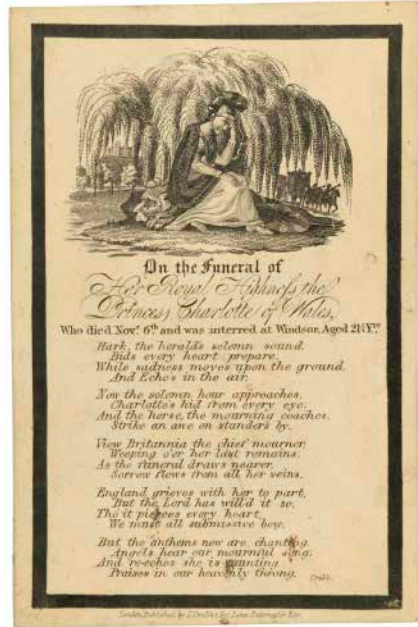 On the Funeral of
Her Royal Highness the
Princess Charlotte of Wales,
Who died Novr. 6th and was interred at Windsor, Aged 21¾ Yrs.
Hark, the herald's solemn sound
Bids every heart prepare,
While sadness moves upon the ground,
And Echo's in the air.
Now the solemn hour approaches,
Charlotte's hid from every eye;
And the herse, the mourning coaches,
Strike an awe on standers by.
View Britannia the chief mourner,
Weeping o'er her last remains,
As the funeral draws nearer,
Sorrow flows from all her veins.
England grieves with her to part,
But the Lord has will'd it so,
Tho' it pierces every heart,
We must all submissive bow.
But the anthems now are chanting
Angels hear our mournful song.
And re-echoes she is
Praises in our heavenly throng.
London, Published by